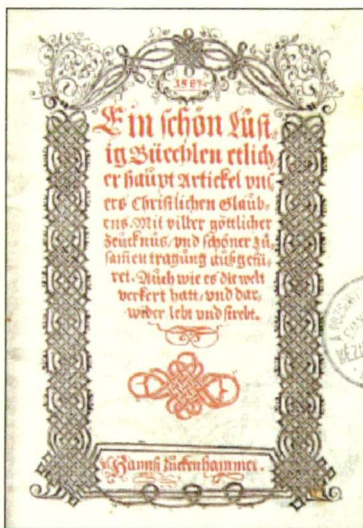 Ein schön Lüst,
ig Büechlen etlich,
er haupt Artickel vns,
ers Christlichen Glaub,
ens. Mit viller göttlicher
Zeucknus, vnd schöner Zu,
samen tragung außgefü,
ret. Auch wie es die welt
verkert hatt, vnd dar,
wider lebt vnd strebt.
Hannß